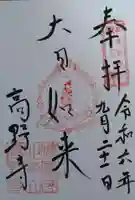 奉拝
令和六年
九月二十二日
大日如来
高野寺